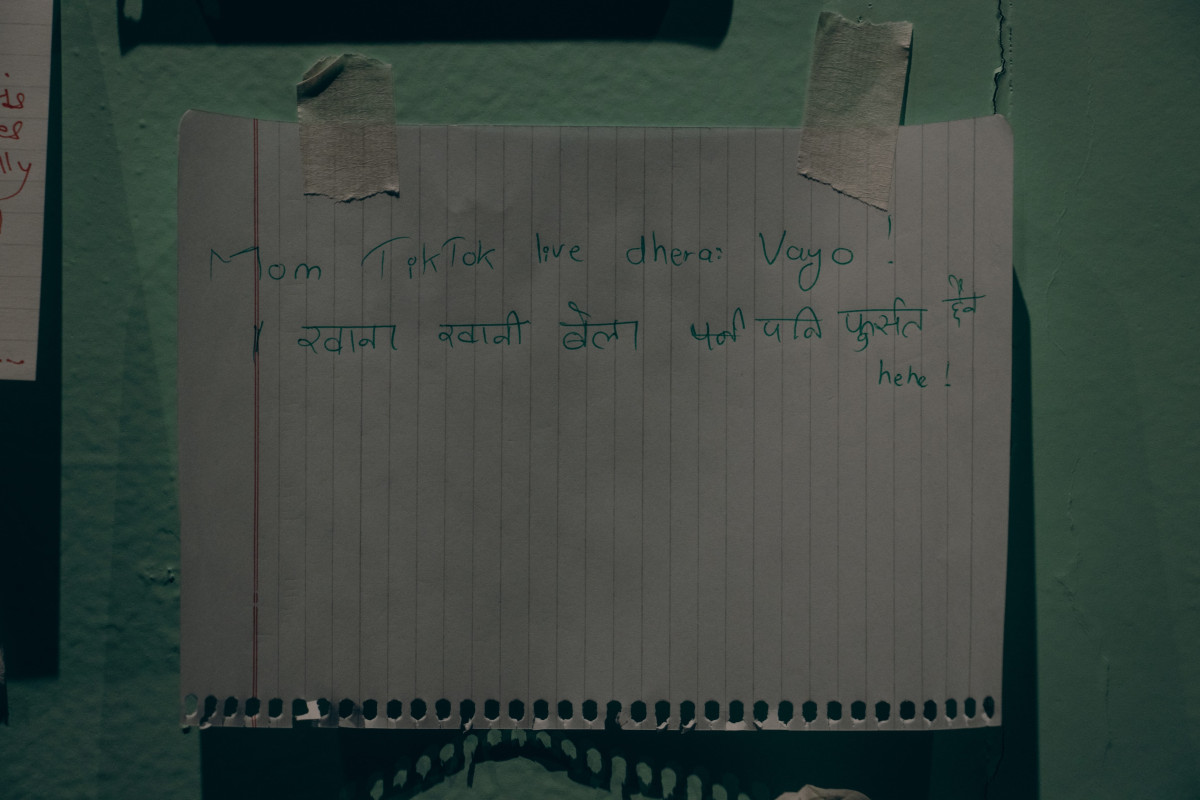 Mom TikTok live dherai Vayo !
खाना खानी बेला पनी पनि फुर्सत छैन
hehe !